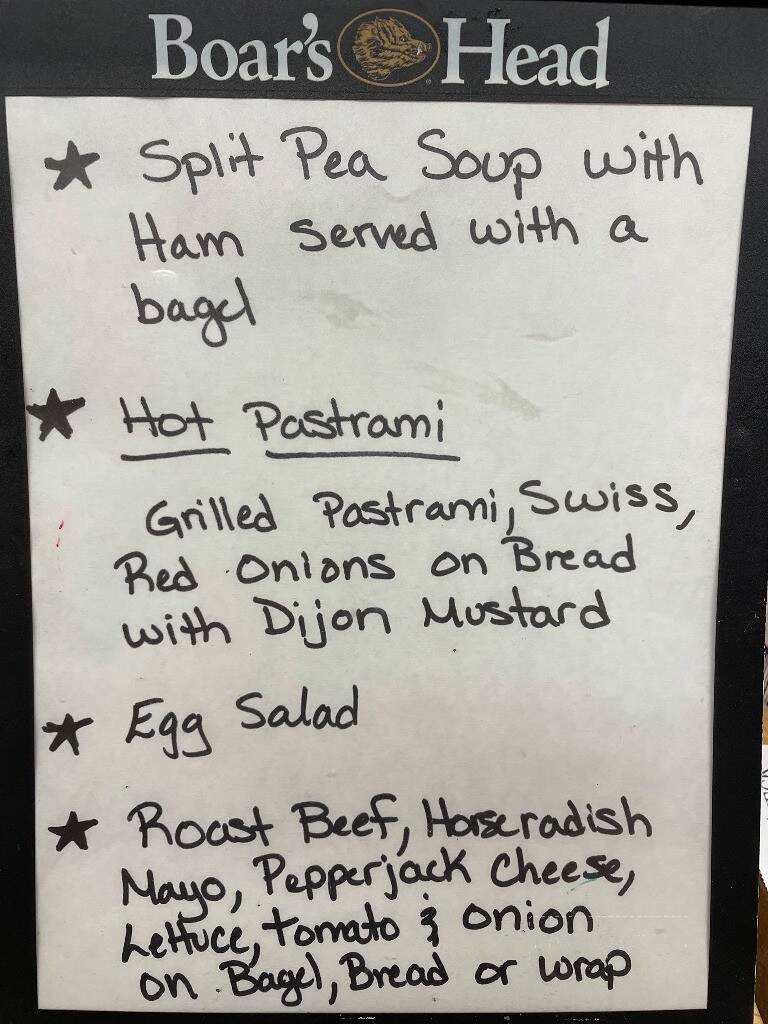 Boar's Head
★ Split Pea Soup with
Ham served with a
bagel
★ Hot Pastrami
Grilled Pastrami, Swiss,
Red Onions on Bread
with Dijon Mustard
★ Egg Salad
★ Roast Beef, Horseradish
Mayo, Pepperjack Cheese,
Lettuce, tomato & onion
on Bagel, Bread or wrap